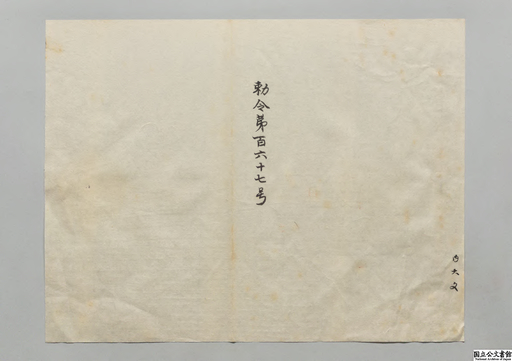 勅令第百六十七号
内大文
国立公文書館
National Archives of Japan